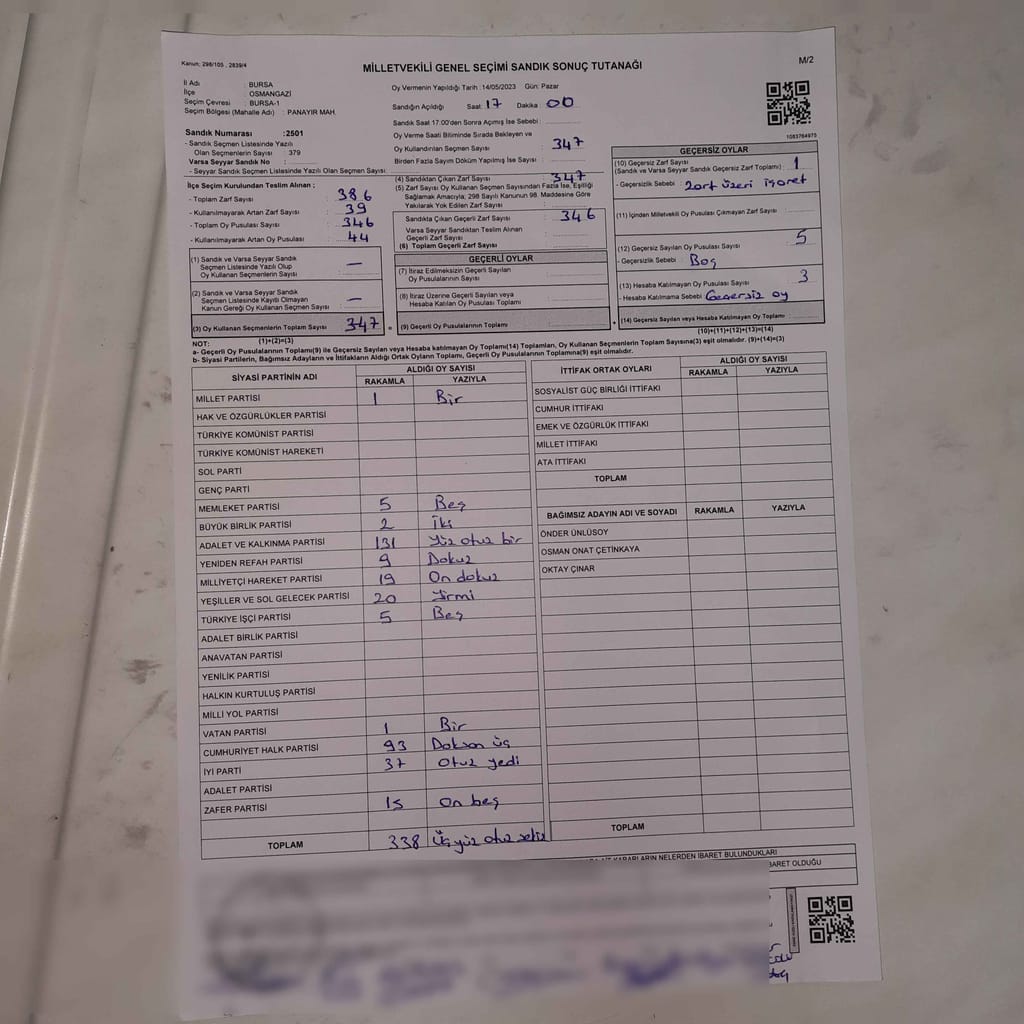 Kanun: 298/105 , 2839/4
MİLLETVEKİLİ GENEL SEÇİMİ SANDIK SONUÇ TUTANAĞI
M/2
İl Adı : BURSA
İlçe : OSMANGAZİ
Seçim Çevresi : BURSA-1
Seçim Bölgesi (Mahalle Adı) : PANAYIR MAH.
Sandık Numarası :2501
- Sandık Seçmen Listesinde Yazılı
Olan Seçmenlerin Sayısı 379
Varsa Seyyar Sandık No :
- Seyyar Sandık Seçmen Listesinde Yazılı Olan Seçmen Sayısı
Oy Vermenin Yapıldığı Tarih :14/05/2023 Gün: Pazar
Sandığın Açıldığı Saat: 17 Dakika : 00
Sandık Saat 17.00'den Sonra Açılmış İse Sebebi :
Oy Verme Saati Bitiminde Sırada Bekleyen ve
Oy Kullandırılan Seçmen Sayısı : 347
Birden Fazla Sayım Döküm Yapılmış İse Sayısı :
1083764975
İlçe Seçim Kurulundan Teslim Alınan ;
- Toplam Zarf Sayısı : 386
- Kullanılmayarak Artan Zarf Sayısı : 39
- Toplam Oy Pusulası Sayısı : 346
- Kullanılmayarak Artan Oy Pusulası : 44
(1) Sandık ve Varsa Seyyar Sandık
Seçmen Listesinde Yazılı Olup
Oy Kullanan Seçmenlerin Sayısı : —
(2) Sandık ve Varsa Seyyar Sandık
Seçmen Listesinde Kayıtlı Olmayan
Kanun Gereği Oy Kullanan Seçmen Sayısı : —
(3) Oy Kullanan Seçmenlerin Toplam Sayısı 347
(1)+(2)=(3)
(4) Sandıktan Çıkan Zarf Sayısı : 347
(5) Zarf Sayısı Oy Kullanan Seçmen Sayısından Fazla İse, Eşitliği
Sağlamak Amacıyla; 298 Sayılı Kanunun 98. Maddesine Göre
Yakılarak Yok Edilen Zarf Sayısı :
Sandıkta Çıkan Geçerli Zarf Sayısı : 346
Varsa Seyyar Sandıktan Teslim Alınan
Geçerli Zarf Sayısı :
(6) Toplam Geçerli Zarf Sayısı :
GEÇERLİ OYLAR
(7) İtiraz Edilmeksizin Geçerli Sayılan
Oy Pusulalarının Sayısı :
(8) İtiraz Üzerine Geçerli Sayılan veya
Hesaba Katılan Oy Pusulası Toplamı :
= (9) Geçerli Oy Pusulalarının Toplamı :
GEÇERSİZ OYLAR
(10) Geçersiz Zarf Sayısı
(Sandık ve Varsa Seyyar Sandık Geçersiz Zarf Toplamı) : 1
- Geçersizlik Sebebi : Zarf üzeri işaret
(11) İçinden Milletvekili Oy Pusulası Çıkmayan Zarf Sayısı :
(12) Geçersiz Sayılan Oy Pusulası Sayısı : 5
- Geçersizlik Sebebi : Boş
(13) Hesaba Katılmayan Oy Pusulası Sayısı : 3
- Hesaba Katılmama Sebebi : Geçersiz oy
+ (14) Geçersiz Sayılan veya Hesaba Katılmayan Oy Toplamı :
(10)+(11)+(12)+(13)=(14)
NOT:
a- Geçerli Oy Pusulalarının Toplamı(9) ile Geçersiz Sayılan veya Hesaba katılmayan Oy Toplamı(14) Toplamları, Oy Kullanan Seçmenlerin Toplam Sayısına(3) eşit olmalıdır. (9)+(14)=(3)
b- Siyasi Partilerin, Bağımsız Adayların ve İttifakların Aldığı Ortak Oyların Toplamı, Geçerli Oy Pusulalarının Toplamına(9) eşit olmalıdır.
SİYASİ PARTİNİN ADI ALDIĞI OY SAYISI
RAKAMLA YAZIYLA
MİLLET PARTİSİ 1 Bir
HAK VE ÖZGÜRLÜKLER PARTİSİ
TÜRKİYE KOMÜNİST PARTİSİ
TÜRKİYE KOMÜNİST HAREKETİ
SOL PARTİ
GENÇ PARTİ
MEMLEKET PARTİSİ 5 Beş
BÜYÜK BİRLİK PARTİSİ 2 İki
ADALET VE KALKINMA PARTİSİ 131 Yüz otuz bir
YENİDEN REFAH PARTİSİ 9 Dokuz
MİLLİYETÇİ HAREKET PARTİSİ 19 On dokuz
YEŞİLLER VE SOL GELECEK PARTİSİ 20 Yirmi
TÜRKİYE İŞÇİ PARTİSİ 5 Beş
ADALET BİRLİK PARTİSİ
ANAVATAN PARTİSİ
YENİLİK PARTİSİ
HALKIN KURTULUŞ PARTİSİ
MİLLİ YOL PARTİSİ
VATAN PARTİSİ 1 Bir
CUMHURİYET HALK PARTİSİ 93 Doksan üç
İYİ PARTİ 37 Otuz yedi
ADALET PARTİSİ
ZAFER PARTİSİ 15 On beş
TOPLAM 338 Üç yüz otuz sekiz
İTTİFAK ORTAK OYLARI ALDIĞI OY SAYISI
RAKAMLA YAZIYLA
SOSYALİST GÜÇ BİRLİĞİ İTTİFAKI
CUMHUR İTTİFAKI
EMEK VE ÖZGÜRLÜK İTTİFAKI
MİLLET İTTİFAKI
ATA İTTİFAKI
TOPLAM
BAĞIMSIZ ADAYIN ADI VE SOYADI RAKAMLA YAZIYLA
ÖNDER ÜNLÜSOY
OSMAN ONAT ÇETİNKAYA
OKTAY ÇINAR
TOPLAM
KARARLARIN NELERDEN İBARET BULUNDUKLARI
BARET OLDUĞU